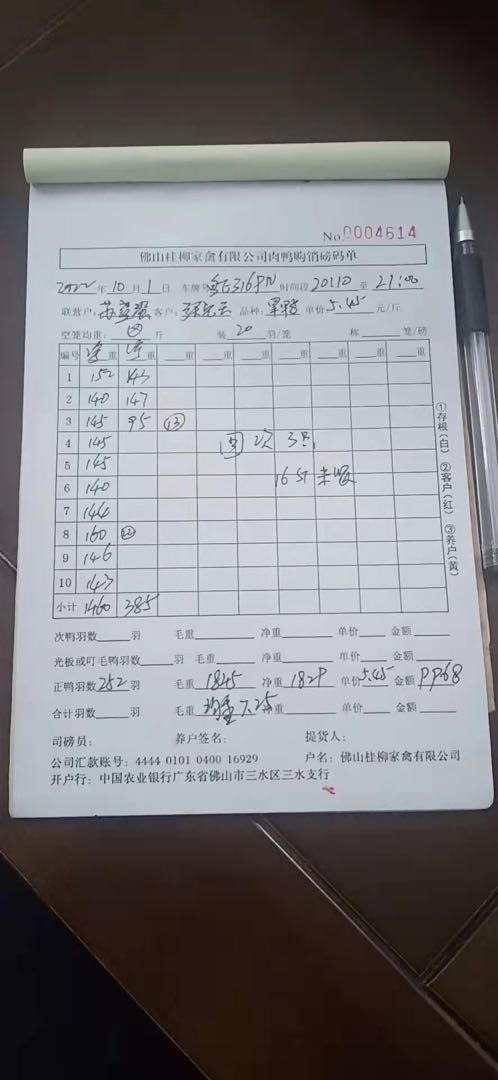 No.0004614
佛山桂柳家禽有限公司肉鸭购销磅码单
2022年10月1日 车牌号 316PN 时间段20110至21:00
联营户: 客户: 品种: 单价5.45元/斤
空笼均重: 斤 装20羽/笼 称 笼/磅
编号 重 重 重 重 重 重 重 重 重
1 152 143
2 140 147
3 145 95 ⑬
4 145 回次3只
5 145
6 140 16 未吸
7 144
8 160 ㉒
9 146
10 143
小计 1460 385
次鸭羽数 羽 毛重 净重 单价 金额
光板或叮毛鸭羽数 羽 毛重 净重 单价 金额
正鸭羽数252羽 毛重1845 净重1829 单价5.45 金额9968
合计羽数 羽 毛重 均重7.25 净重 单价 金额
司磅员: 养户签名: 提货人:
公司汇款账号: 4444 0101 0400 16929 户名: 佛山桂柳家禽有限公司
开户行: 中国农业银行广东省佛山市三水区三水支行
①存根(白) ②客户(红) ③养户(黄)